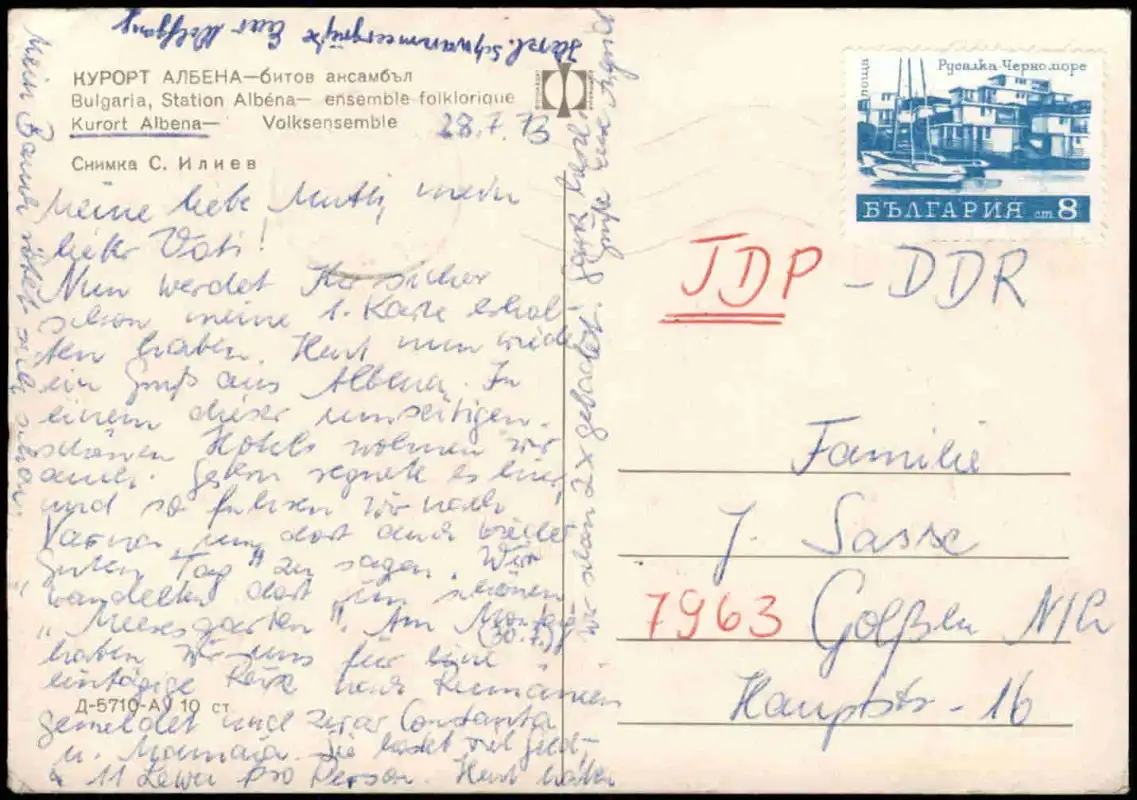 КУРОРТ АЛБЕНА—битов ансамбъл
Bulgaria, Station Albéna— ensemble folklorique
Kurort Albena— Volksensemble
28.7.73
Снимка С. Илиев
Meine liebe Mutti, mein
lieber Vati!
Nun werdet Ihr sicher
schon meine 1. Karte erhal-
ten haben. Heut nun wieder
ein Gruß aus Albena. In
einem dieser umseitigen
schönen Hotels wohnen wir
auch. Gestern regnete es
und so fuhren wir nach
Varna, um dort auch wieder
„Guten Tag" zu sagen. Wir
wandelten dort im schönen
„Meeresgarten". Am Montag
(30.7.)
haben wir uns für eine
eintägige Reise nach Rumänien
gemeldet und zwar Constanta
u. Mamaia. Sie kostet viel Geld-
11 Lewa pro Person. Heut haben
wir schon 2x gebadet.
Mein Bauch rötet sich schon.
Herzl. Schwarzmeergrüße Euer Wolfgang
Д-5710-А 10 ст
поща
Русалка Черноморе
БЪЛГАРИЯ ст 8
JDP - DDR
Familie
J. Sasse
7963 Golßen N/L
Hauptstr - 16